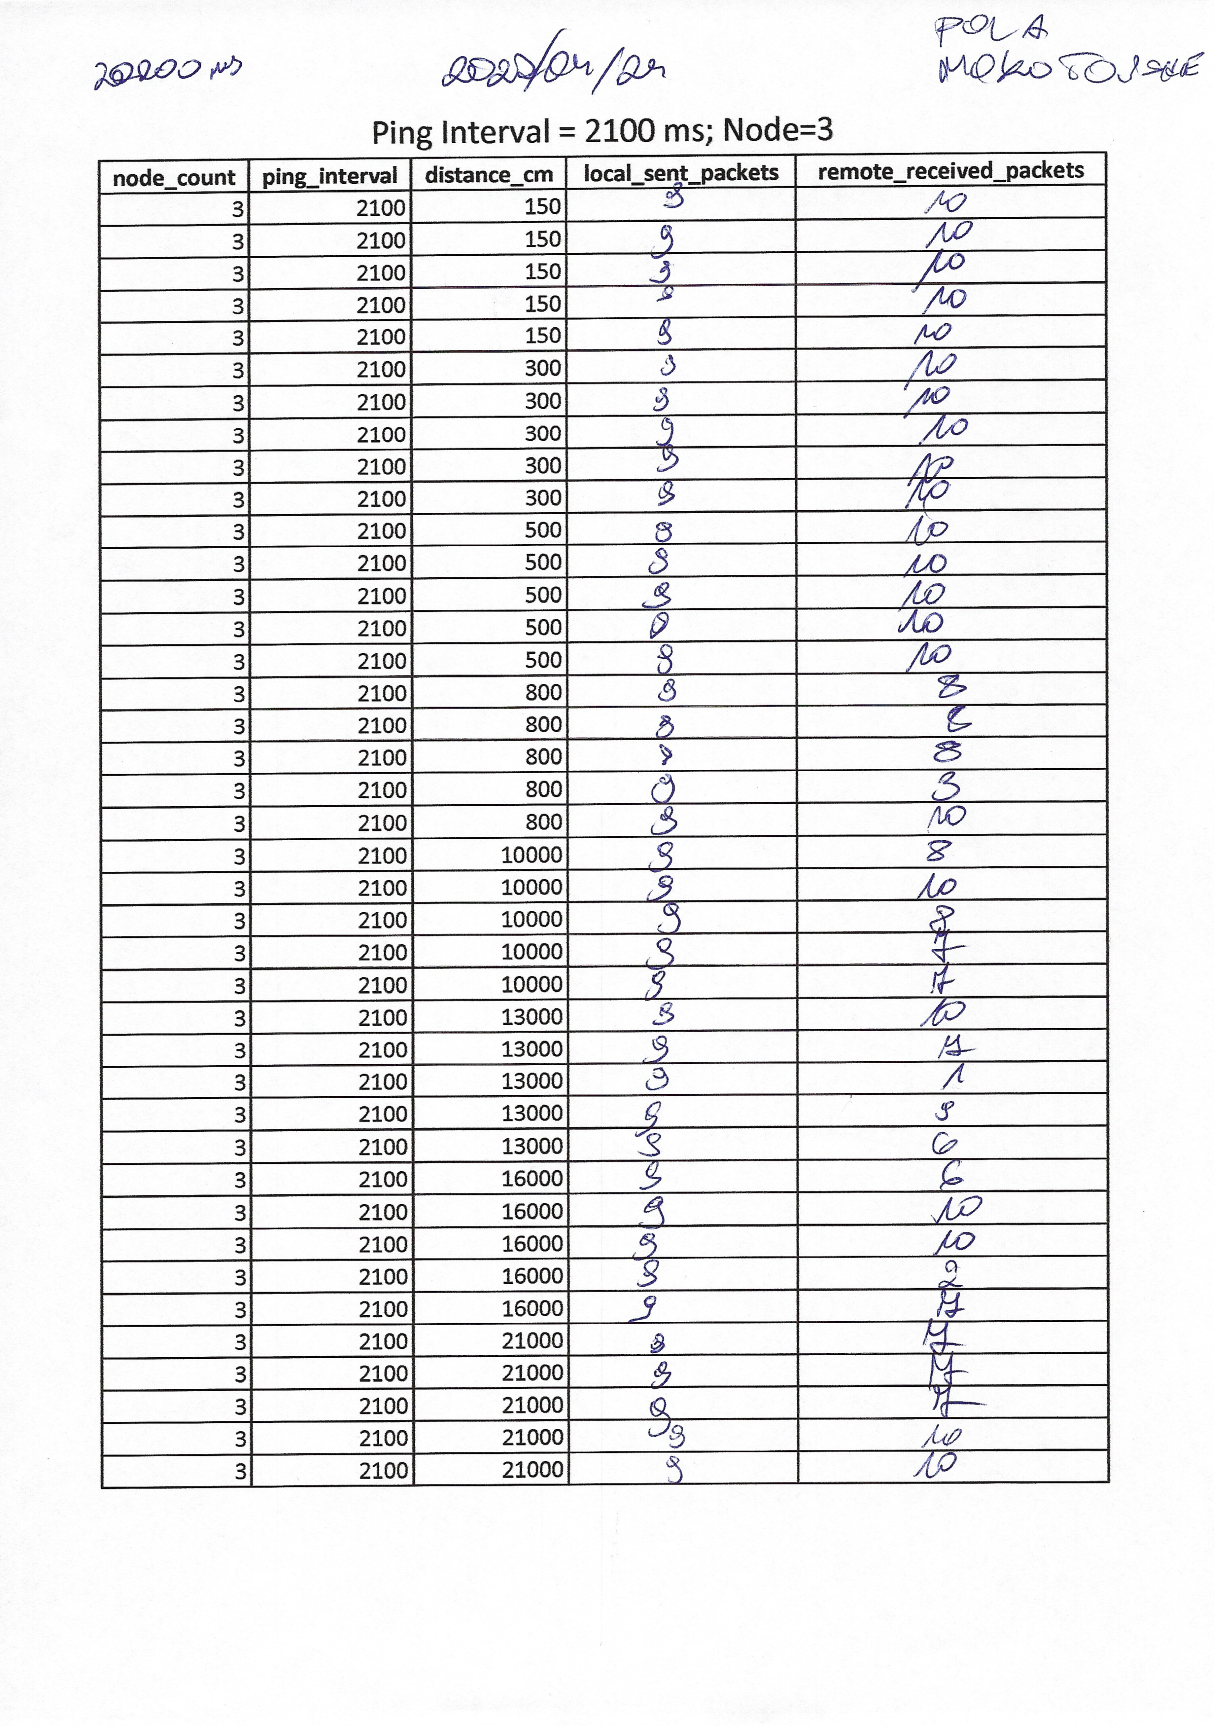 20200 ms
2022/04/24
POLA
MOKOTOWSKIE
Ping Interval = 2100 ms; Node=3
node_count ping_interval distance_cm local_sent_packets remote_received_packets
3 2100 150 9 10
3 2100 150 9 10
3 2100 150 9 10
3 2100 150 9 10
3 2100 150 9 10
3 2100 300 9 10
3 2100 300 9 10
3 2100 300 9 10
3 2100 300 9 10
3 2100 300 9 10
3 2100 500 9 10
3 2100 500 9 10
3 2100 500 9 10
3 2100 500 10
3 2100 500 9 10
3 2100 800 9 8
3 2100 800 9 8
3 2100 800 8
3 2100 800 9 3
3 2100 800 9 10
3 2100 10000 9 8
3 2100 10000 9 10
3 2100 10000 9 8
3 2100 10000 9 7
3 2100 10000 9 7
3 2100 13000 9 10
3 2100 13000 9 7
3 2100 13000 9 1
3 2100 13000 9 9
3 2100 13000 9 6
3 2100 16000 9 6
3 2100 16000 9 10
3 2100 16000 9 10
3 2100 16000 9 2
3 2100 16000 9 7
3 2100 21000 9 7
3 2100 21000 9 7
3 2100 21000 9 7
3 2100 21000 9 10
3 2100 21000 9 10